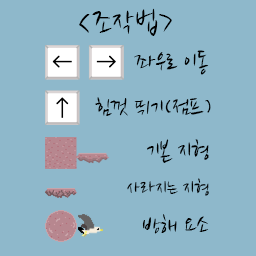 <조작법>
← → 좌우로 이동
↑ 힘껏 뛰기(점프)
기본 지형
사라지는 지형
방해 요소